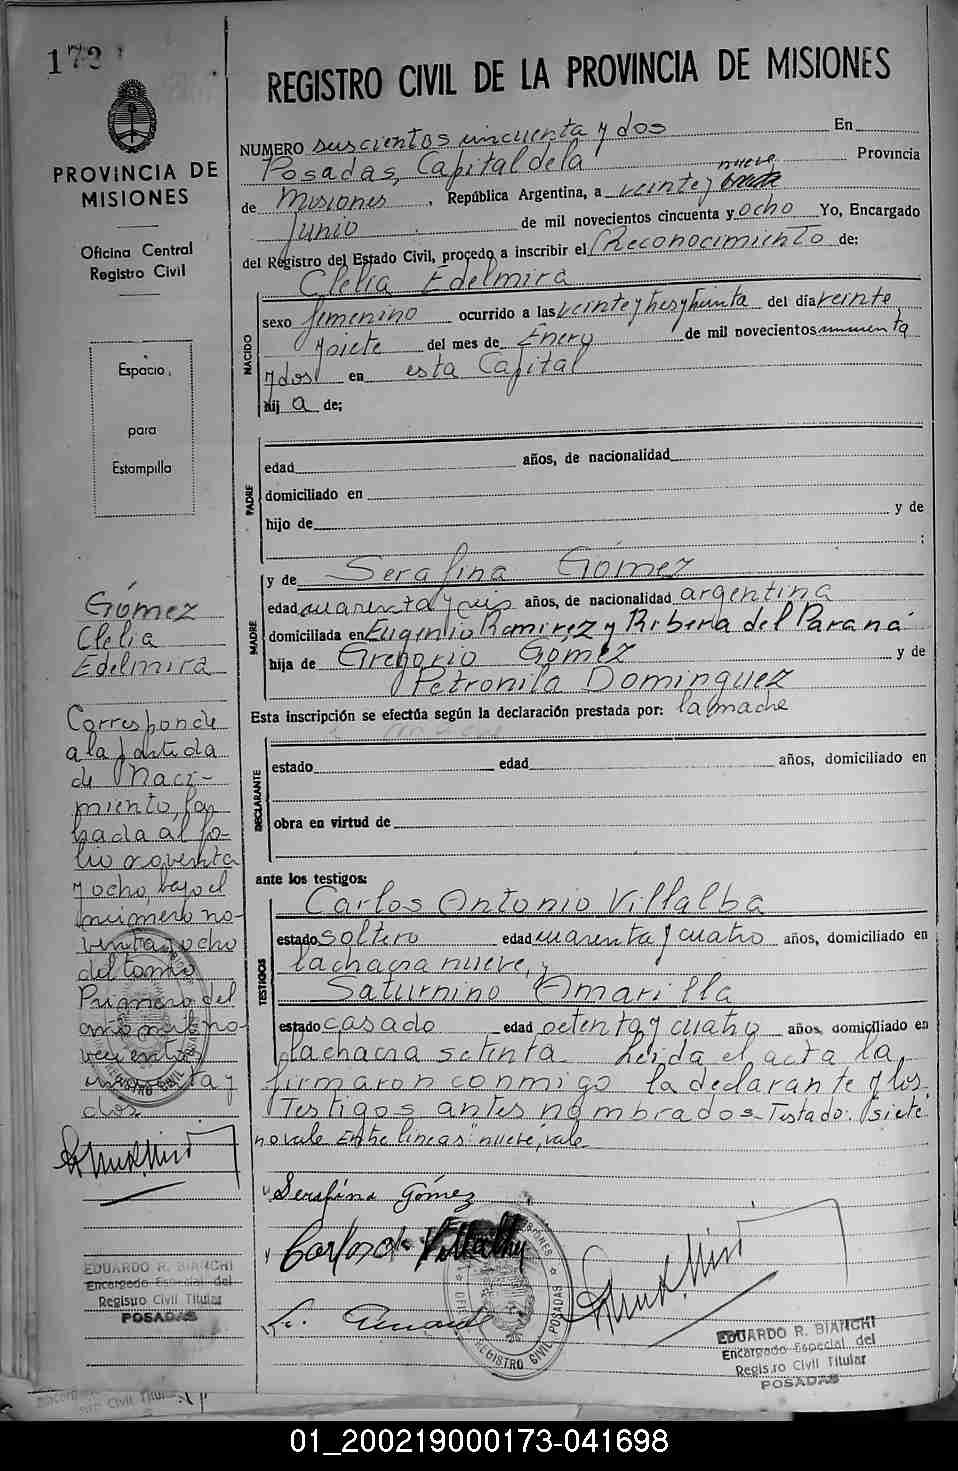 172
REGISTRO CIVIL DE LA PROVINCIA DE MISIONES
PROVINCIA DE
MISIONES
Oficina Central
Registro Civil
Espacio
para
Estampilla
NUMERO duscientos cincuenta y dos En
Posadas, Capital de la Provincia
nueve
de Misiones, República Argentina, a veinte y
Junio de mil novecientos cincuenta y ocho Yo, Encargado
del Registro del Estado Civil, procedo a inscribir el Reconocimiento de:
Clelia Edelmira
NACIDO
sexo femenino ocurrido a las veinte y tres y treinta del día veinte
y siete del mes de Enero de mil novecientos cincuenta
y dos en esta Capital
hij a de;
PADRE
edad años, de nacionalidad
domiciliado en
hijo de y de
;
MADRE
y de Serafina Gómez
edad cuarenta y seis años, de nacionalidad argentina
domiciliada en Eugenio Ramirez y Ribera del Paraná
hija de Gregorio Gómez y de
Petronila Dominguez
Esta inscripción se efectúa según la declaración prestada por: la madre
DECLARANTE
estado edad años, domiciliado en
obra en virtud de
ante los testigos:
TESTIGOS
Carlos Antonio Villalba
estado soltero edad cuarenta y cuatro años, domiciliado en
la chacra nueve, y
Saturnino Amarilla
estado casado edad setenta y cuatro años, domiciliado en
la chacra setenta. Leida el acta la
firmaron conmigo la declarante y los
Testigos antes nombrados. Testado: siete
no vale Entre lineas "nueve", vale
Serafina Gómez
Carlos A. Villalba
EDUARDO R. BIANCHI
Encargado Especial del
Registro Civil Titular
POSADAS
REGISTRO CIVIL POSADAS
Gómez
Clelia
Edelmira
Corresponde
a la partida
de Naci-
miento, la
bada al fo-
lio noventa
y ocho, bajo el
número no-
venta y ocho
del tomo
Primero del
año mil no-
vecientos
cincuenta y
dos
REGISTRO CIVIL
EDUARDO R. BIANCHI
Encargado Especial del
Registro Civil Titular
POSADAS
01_200219000173-041698